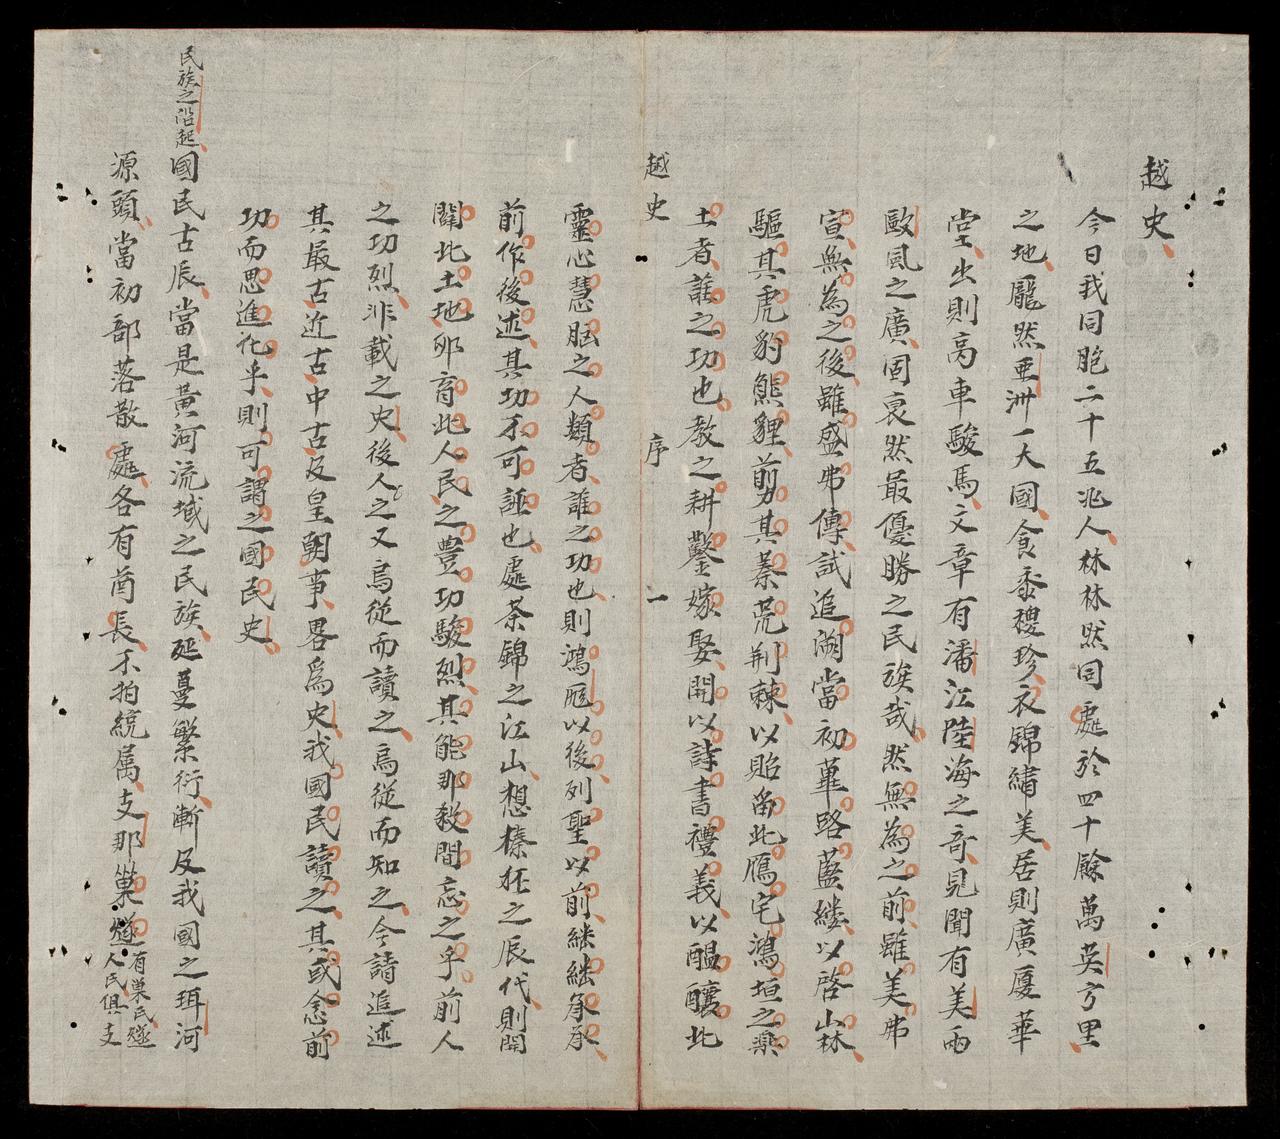 越史
今日我同胞二十五兆人林林然同處於四十餘萬英方里
之地龐然亜洲一大國食黍稷珍衣錦繡美居則廣厦華
堂出則高車駿馬文章有潘江陸海之奇見聞有美雨
歐風之廣固裒然最優勝之民族哉然無為之前雖美弗
宣無為之後雖盛弗傳試追溯當初蓽路藍縷以啓山林
驅其虎豹熊貍剪其蓁荒荆棘以貽畱此鴈宅鴻垣之樂
土者誰之功也教之耕鑿嫁娶開以詩書禮義以醖釀此
越史 序 一
靈心慧腦之人類者誰之功也則鴻厖以後列聖以前継継承承
前作後述其功不可誣也處茶錦之江山想榛狉之辰代則開
闢此土地卵育此人民之豊功駿烈其能那毅間忘之乎前人
之功烈非載之史後人之又烏從而讀之烏從而知之今請追述
其最古近古中古及皇朝事畧爲史我國民讀之其或念前
功而思進化乎則可謂之國民史
民族之沿起 國民古辰當是黄河流域之民族延蔓繁衍漸及我國之珥河
源頭當初部落散處各有酋長不拍統属支那巢燧有巢氏燧人氏俱支